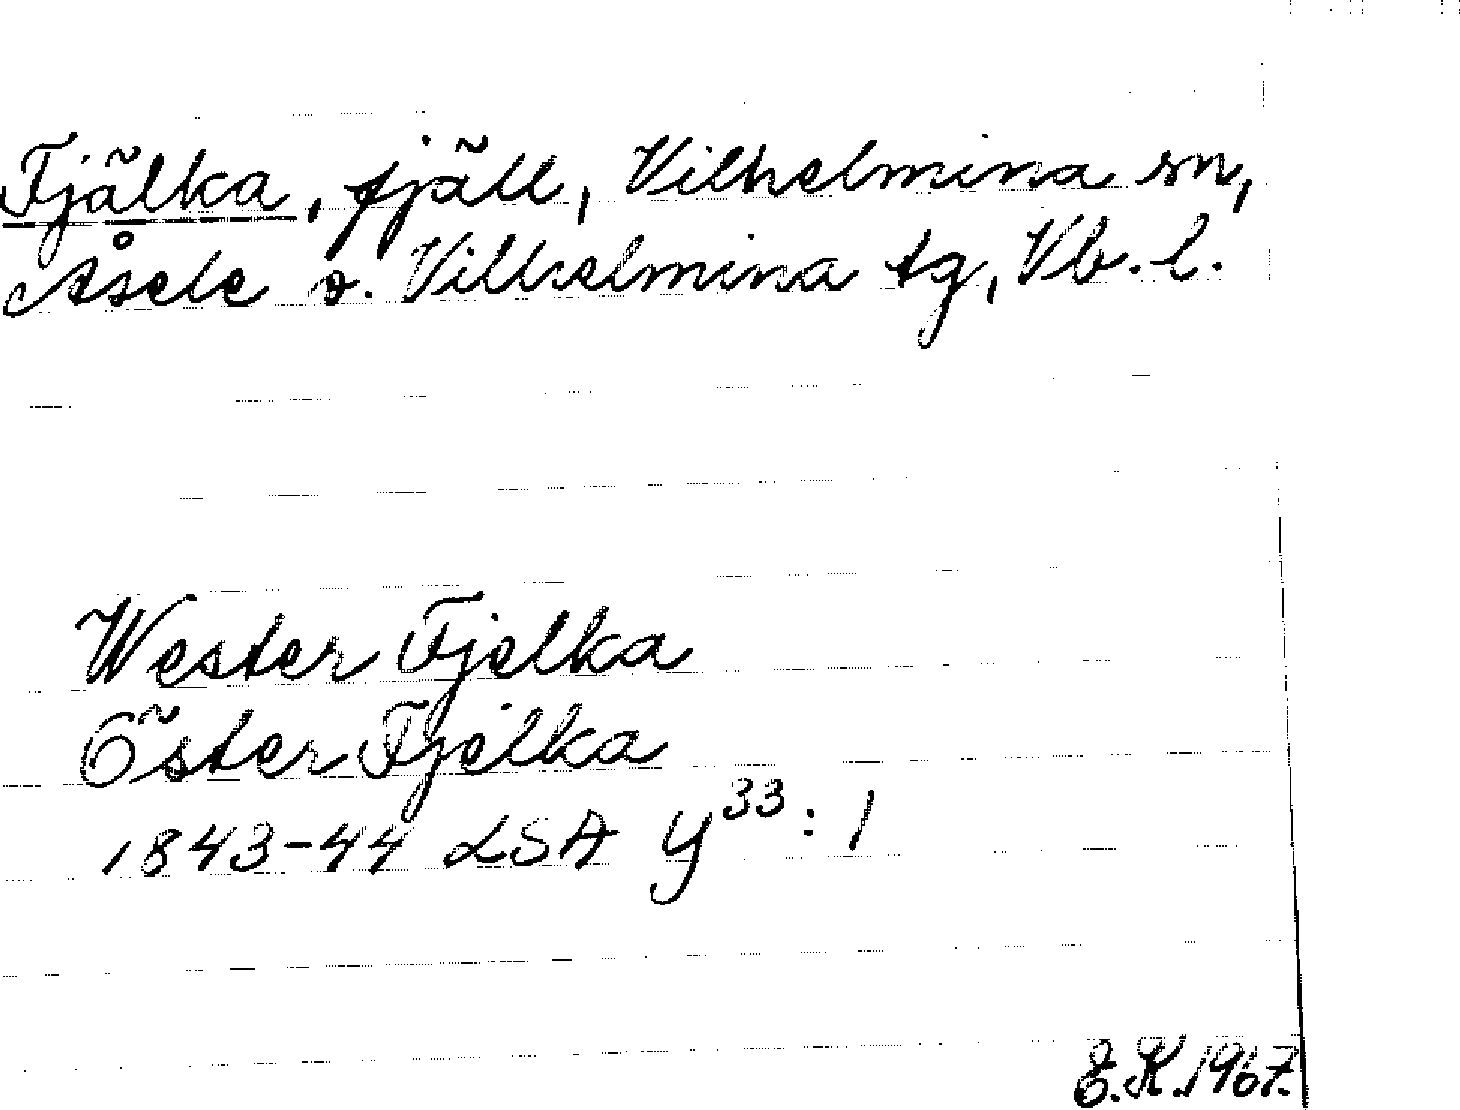 Fjälka, fjäll, Vilhelmina sn,
Åsele o. Vilhelmina tg, Vb. l.
Wester Fjelka
Öster Fjelka
1843-44 LSA Y³³: 1
E.K. 1967.